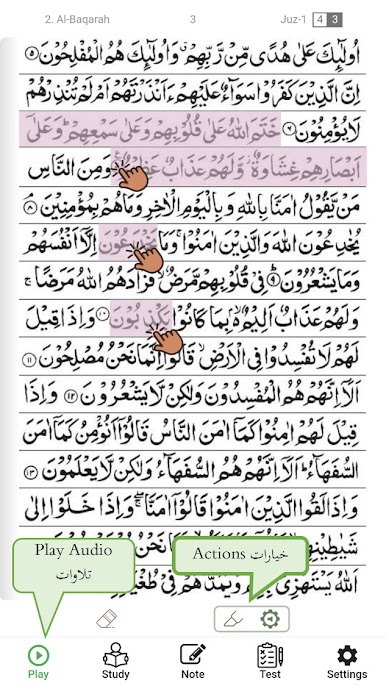 2. Al-Baqarah 3 Juz-1 4 3
اُولٰٓئِكَ عَلٰى هُدًى مِّنْ رَّبِّهِمْ ۙ وَاُولٰٓئِكَ هُمُ الْمُفْلِحُوْنَ ۵
اِنَّ الَّذِيْنَ كَفَرُوْا سَوَآءٌ عَلَيْهِمْ ءَاَنْذَرْتَهُمْ اَمْ لَمْ تُنْذِرْهُمْ
لَا يُؤْمِنُوْنَ ۶ خَتَمَ اللّٰهُ عَلٰى قُلُوْبِهِمْ وَعَلٰى سَمْعِهِمْ ؕ وَعَلٰٓى
اَبْصَارِهِمْ غِشَاوَةٌ ۫ وَّلَهُمْ عَذَابٌ وَمِنَ النَّاسِ
مَنْ يَّقُوْلُ اٰمَنَّا بِاللّٰهِ وَ بِالْيَوْمِ الْاٰخِرِ وَمَا هُمْ بِمُؤْمِنِيْنَ ۸
يُخٰدِعُوْنَ اللّٰهَ وَالَّذِيْنَ اٰمَنُوْا ۚ وَمَا يَخْدَعُوْنَ اِلَّآ اَنْفُسَهُمْ
وَمَا يَشْعُرُوْنَ ۹ فِيْ قُلُوْبِهِمْ مَّرَضٌ ۙ فَزَادَهُمُ اللّٰهُ مَرَضًا ۚ
وَلَهُمْ عَذَابٌ اَلِيْمٌ ۢ بِمَا كَانُوْا يَكْذِبُوْنَ ۱۰ وَاِذَا قِيْلَ
لَهُمْ لَا تُفْسِدُوْا فِي الْاَرْضِ ۙ قَالُوْٓا اِنَّمَا نَحْنُ مُصْلِحُوْنَ ۱۱
اَلَآ اِنَّهُمْ هُمُ الْمُفْسِدُوْنَ وَلٰكِنْ لَّا يَشْعُرُوْنَ ۱۲ وَاِذَا
قِيْلَ لَهُمْ اٰمِنُوْا كَمَآ اٰمَنَ النَّاسُ قَالُوْٓا اَنُؤْمِنُ كَمَآ اٰمَنَ
السُّفَهَآءُ ؕ اَلَآ اِنَّهُمْ هُمُ السُّفَهَآءُ وَلٰكِنْ لَّا يَعْلَمُوْنَ ۱۳
وَاِذَا لَقُوا الَّذِيْنَ اٰمَنُوْا قَالُوْٓا اٰمَنَّا ۖ وَاِذَا خَلَوْا اِلٰى
نَحْنُ
اَللّٰهُ يَسْتَهْزِئُ وَيَمُدُّهُمْ فِيْ
Play Audio
تلاوات
Actions خيارات
Play Study Note Test Settings